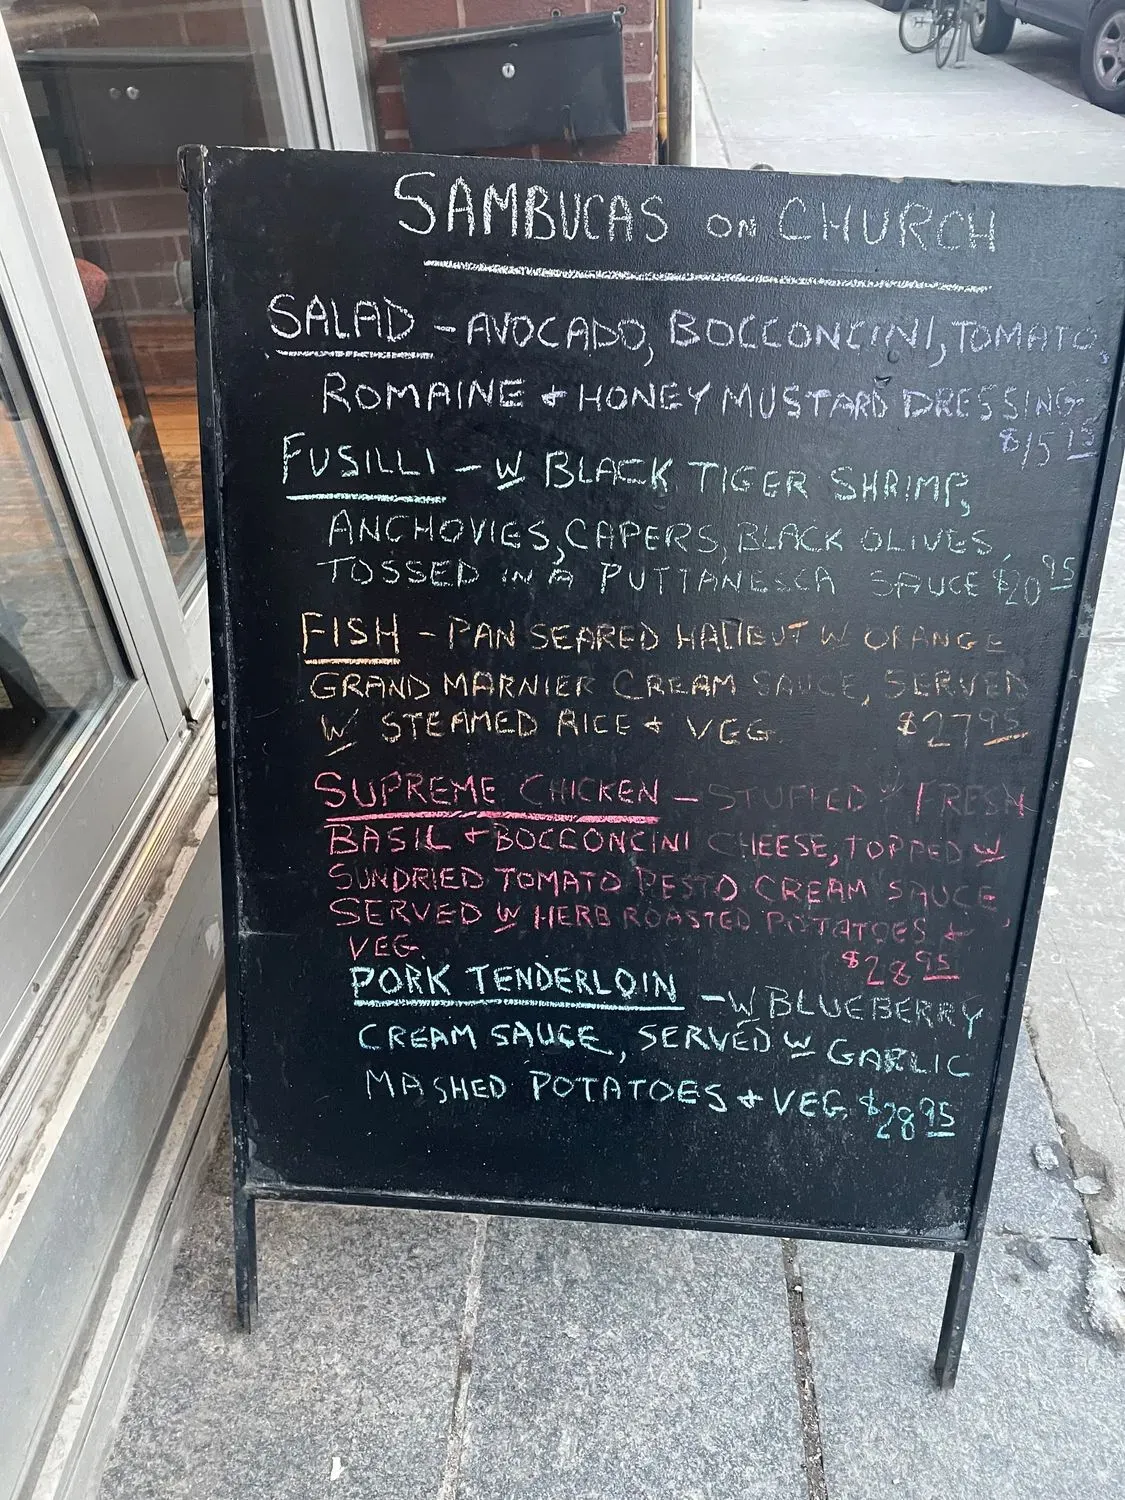 SAMBUCAS ON CHURCH
SALAD - AVOCADO, BOCCONCINI, TOMATO,
ROMAINE + HONEY MUSTARD DRESSING
$15 95
FUSILLI - W BLACK TIGER SHRIMP,
ANCHOVIES, CAPERS, BLACK OLIVES,
TOSSED IN A PUTTANESCA SAUCE $20 95
FISH - PAN SEARED HALIBUT W ORANGE
GRAND MARNIER CREAM SAUCE, SERVED
W STEAMED RICE + VEG $27 95
SUPREME CHICKEN - STUFFED W/ FRESH
BASIL + BOCCONCINI CHEESE, TOPPED W
SUNDRIED TOMATO PESTO CREAM SAUCE,
SERVED W HERB ROASTED POTATOES +
VEG. $28 95
PORK TENDERLOIN - W BLUEBERRY
CREAM SAUCE, SERVED W GARLIC
MASHED POTATOES + VEG. $28 95